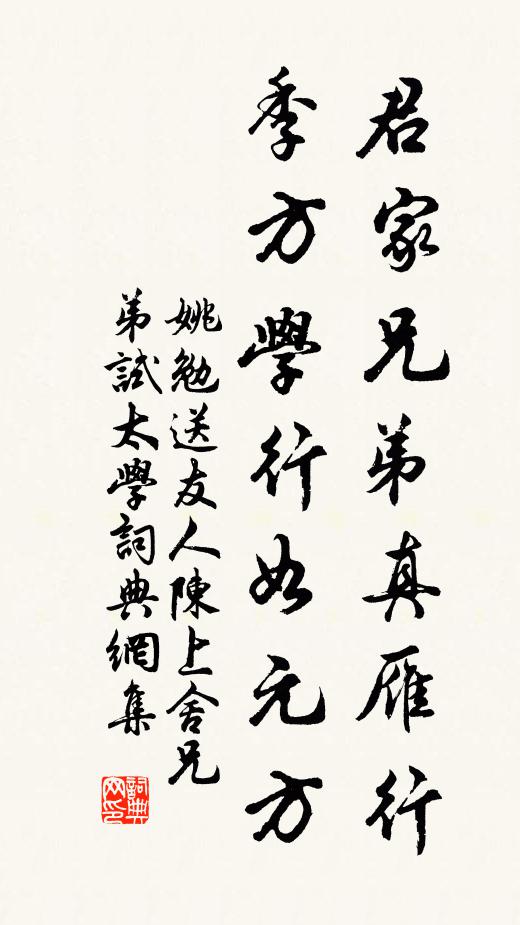 君家兄弟真雁行
季方學行如元方
姚勉送友人陳上舍兄
弟試太學詞典網集
詞典
网印